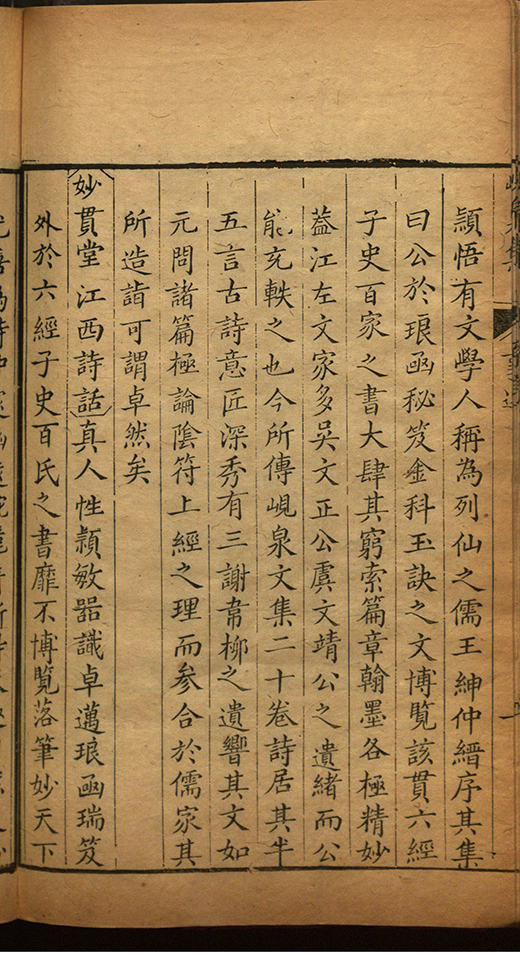 頴悟有文學人稱為列仙之儒王紳仲縉序其集
曰公於琅函秘笈金科玉訣之文博覽該貫六經
子史百家之書大肆其窮索篇章翰墨各極精妙
葢江左文家多吳文正公虞文靖公之遺緒而公
能充軼之也今所傳峴泉文集二十卷詩居其半
五言古詩意匠深秀有三謝韋柳之遺響其文如
元問諸篇極論陰符上經之理而参合於儒家其
所造詣可謂卓然矣
妙貫堂江西詩話真人性穎敏器識卓邁琅函瑞笈
外於六經子史百氏之書靡不博覧落筆妙天下